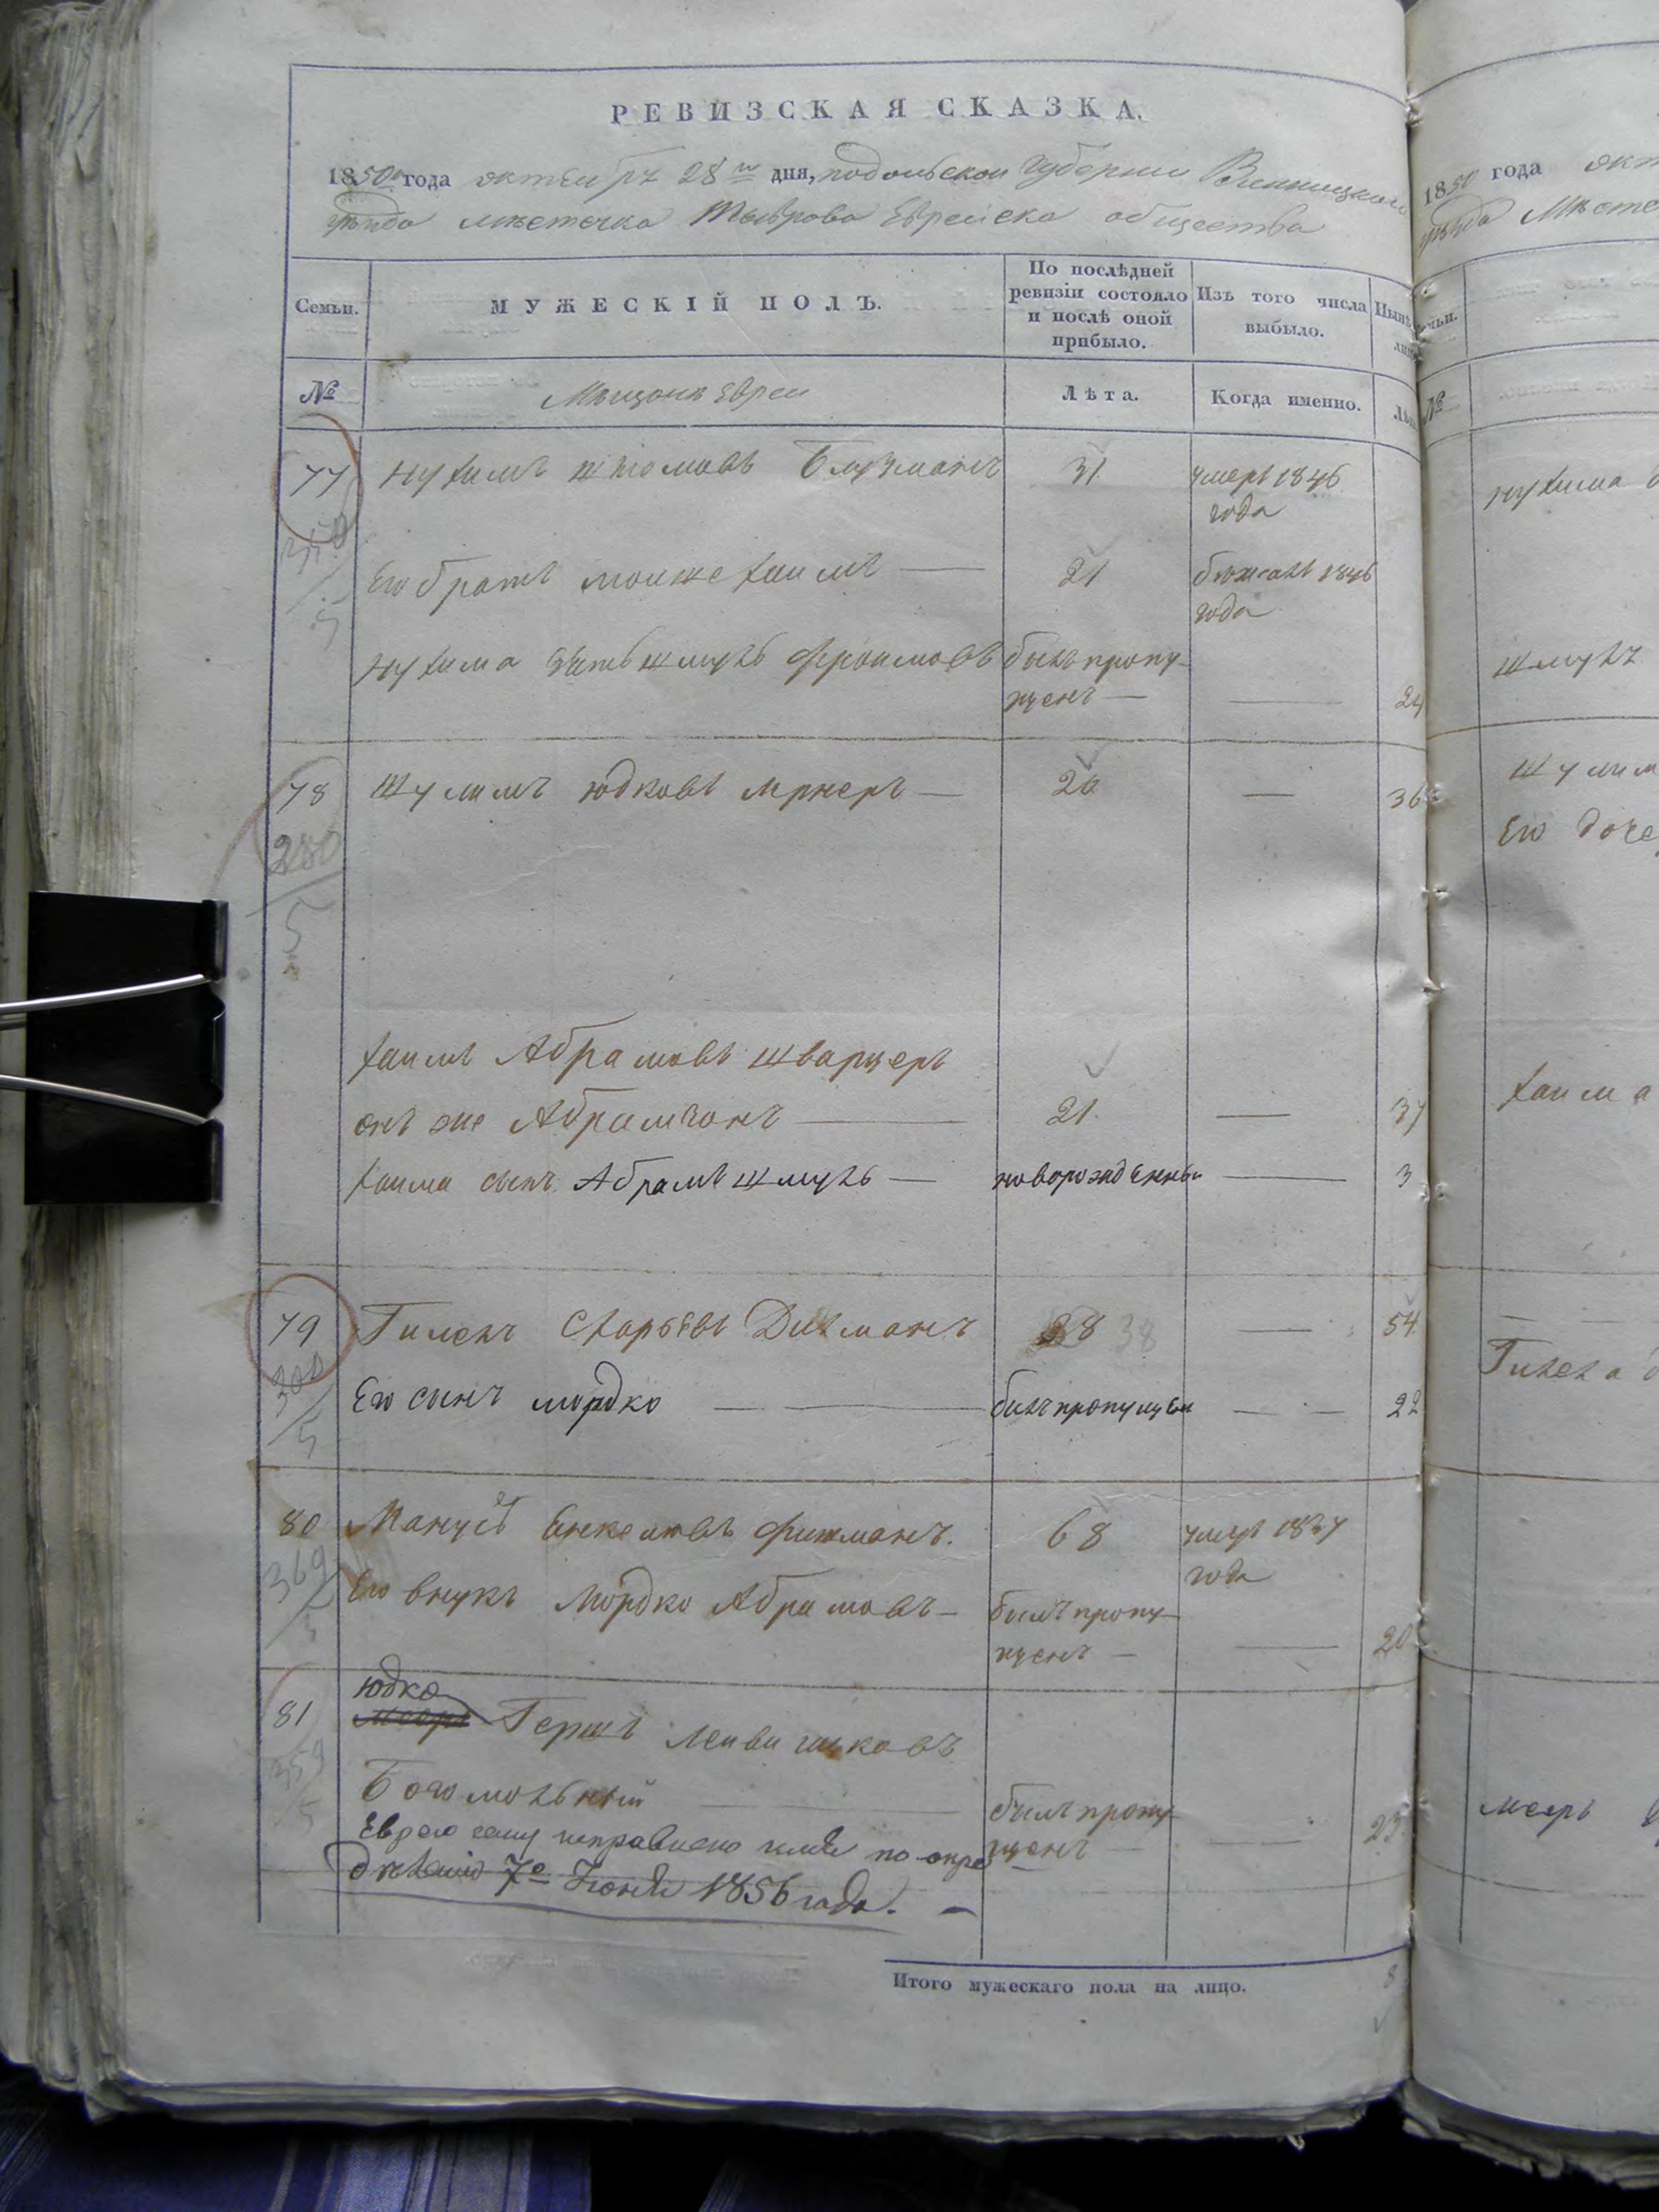 РЕВИЗСКАЯ СКАЗКА.
1850 года октября 28 дня, подольской Губернии Винницкаго
уѣзда мѣстечка Тыврова Еврейска общества
Семьи.
МУЖЕСКІЙ ПОЛЪ.
По послѣдней ревизіи состояло и послѣ оной прибыло.
Изъ того числа выбыло.
Нынѣ
№
Мѣщанъ Евреи
Лѣта.
Когда именно.
Лѣ
77 Нухимъ Блузманъ 31 умеръ 1846
года
Его братъ Моише Хаимъ — 21 бѣжалъ 1846
года
Нухима зять Шмуль Фроимовъ былъ пропу-
щенъ — — 24
350
5
78 Шулимъ Юдковъ Лернеръ — 26 — 36
280
5
Хаимъ Абрамовъ Шварцеръ
онъ же — 21 — 37
Хаима сынъ Абрамъ Шмуль — новорожденный — 3
79 Гилель Дихманъ 28 38 — 54
Его сынъ Мордко — былъ пропущен — 22
300
5
80 Манусъ Енкелювъ Фишманъ. 68 умеръ 1837
года
Его внукъ Мордко Абрамовъ — былъ пропу-
щенъ — — 20
369
5
Юдко
81 Мееръ Гершъ Лейви
Богомольный — былъ пропу-
щенъ — — 23
359
5
Еврею сему исправлено имя по опре
дѣленію 7º Іюня 1856 года. —
Итого мужескаго пола на лицо. 8
1850 года окт
уѣзда Мѣсте
№
Нухима
Шмуля
Шулим
Его доче
Хаима
Гилела
Мееръ